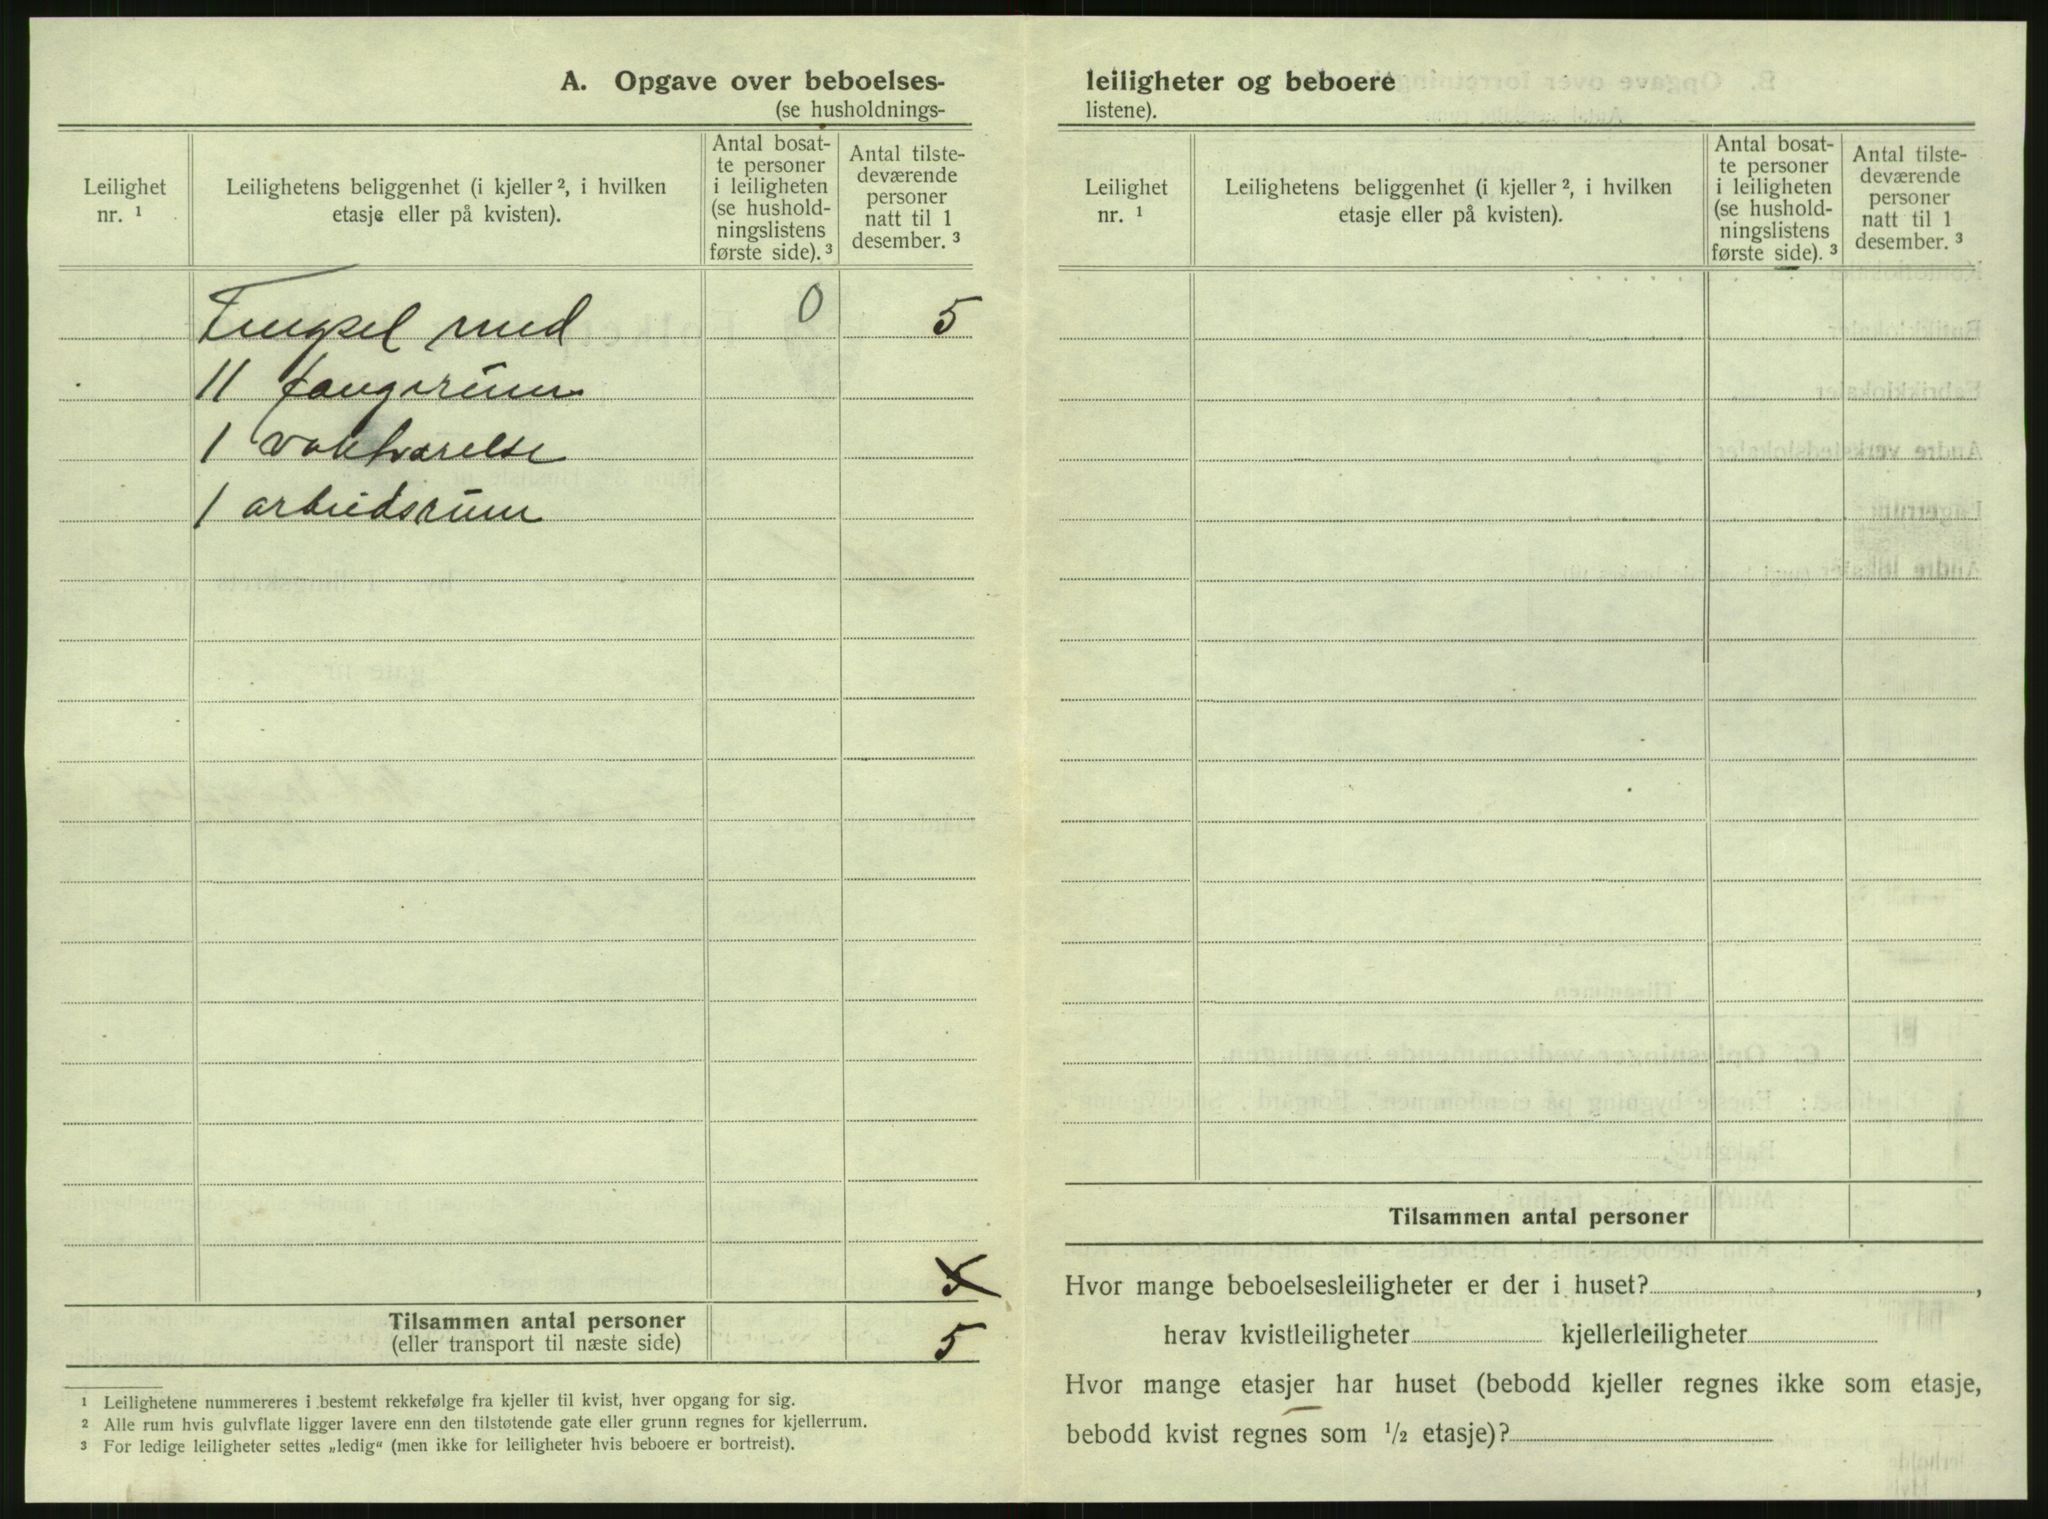 A. Opgave over beboelses-
(se husholdnings-
Leilighet
nr. 1
Leilighetens beliggenhet (i kjeller 2, i hvilken
etasje eller på kvisten).
Antal bosat-
te personer
i leiligheten
(se hushold-
ningslistens
første side). 3
Antal tilste-
deværende
personer
natt til 1
desember. 3
Fengsel med 0 5
11 fangerum
1 vaktværelse
1 arbeidsrum
5
Tilsammen antal personer
(eller transport til næste side)
5
1 Leilighetene nummereres i bestemt rekkefølge fra kjeller til kvist, hver opgang for sig.
2 Alle rum hvis gulvflate ligger lavere enn den tilstøtende gate eller grunn regnes for kjellerrum.
3 For ledige leiligheter settes „ledig“ (men ikke for leiligheter hvis beboere er bortreist).
leiligheter og beboere
listene).
Leilighet
nr. 1
Leilighetens beliggenhet (i kjeller 2, i hvilken
etasje eller på kvisten).
Antal bosat-
te personer
i leiligheten
(se hushold-
ningslistens
første side). 3
Antal tilste-
deværende
personer
natt til 1
desember. 3
Tilsammen antal personer
Hvor mange beboelsesleiligheter er der i huset? ,
herav kvistleiligheter kjellerleiligheter
Hvor mange etasjer har huset (bebodd kjeller regnes ikke som etasje,
bebodd kvist regnes som 1/2 etasje)?